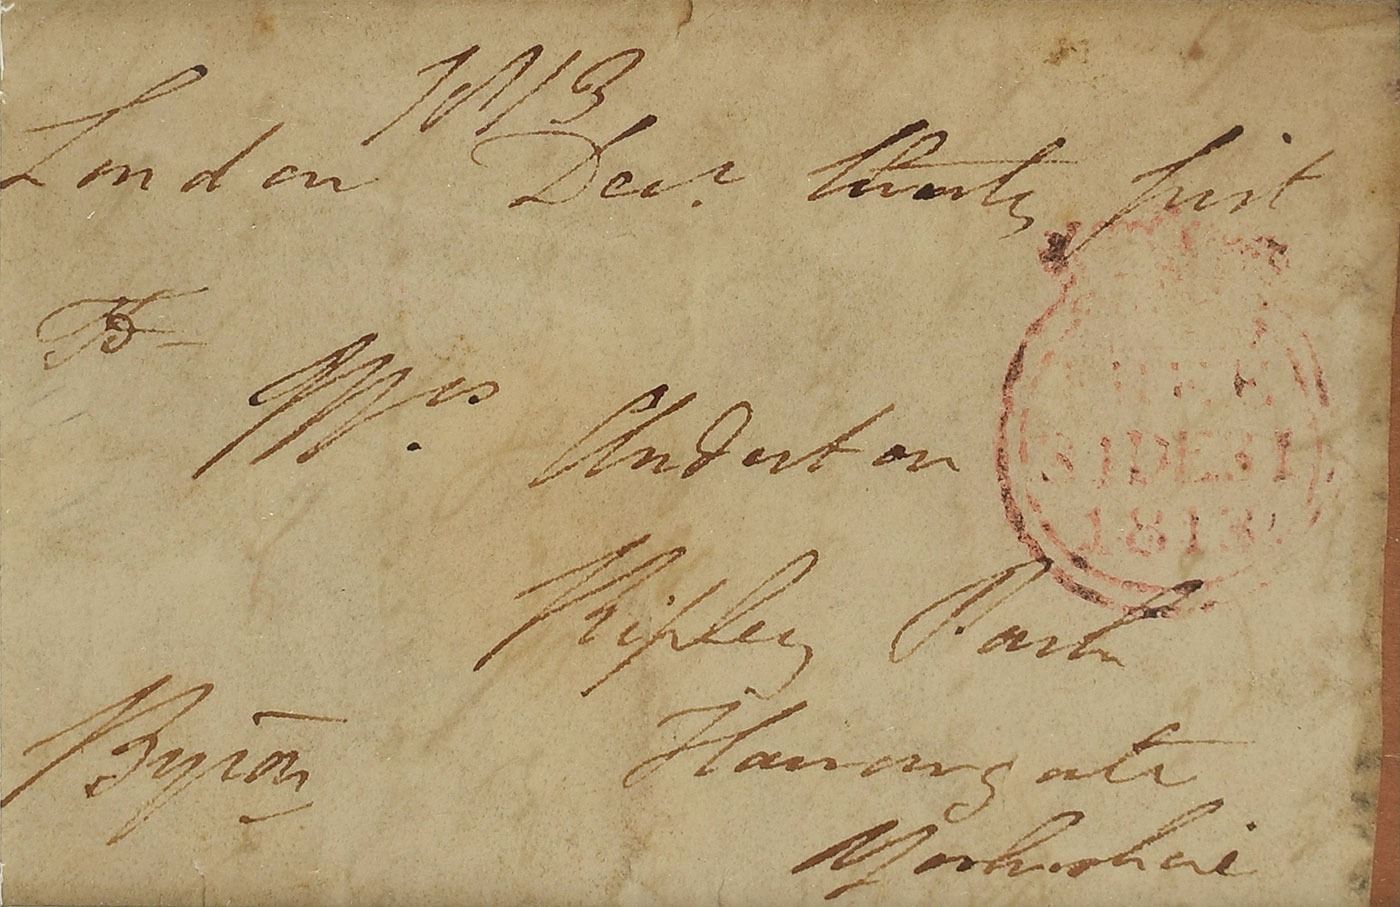 1813
London Decr. thirty first
To
Mrs. Anderton
Ripley Park
Harrowgate
Yorkshire
Byron
FREE
31DE31
1813